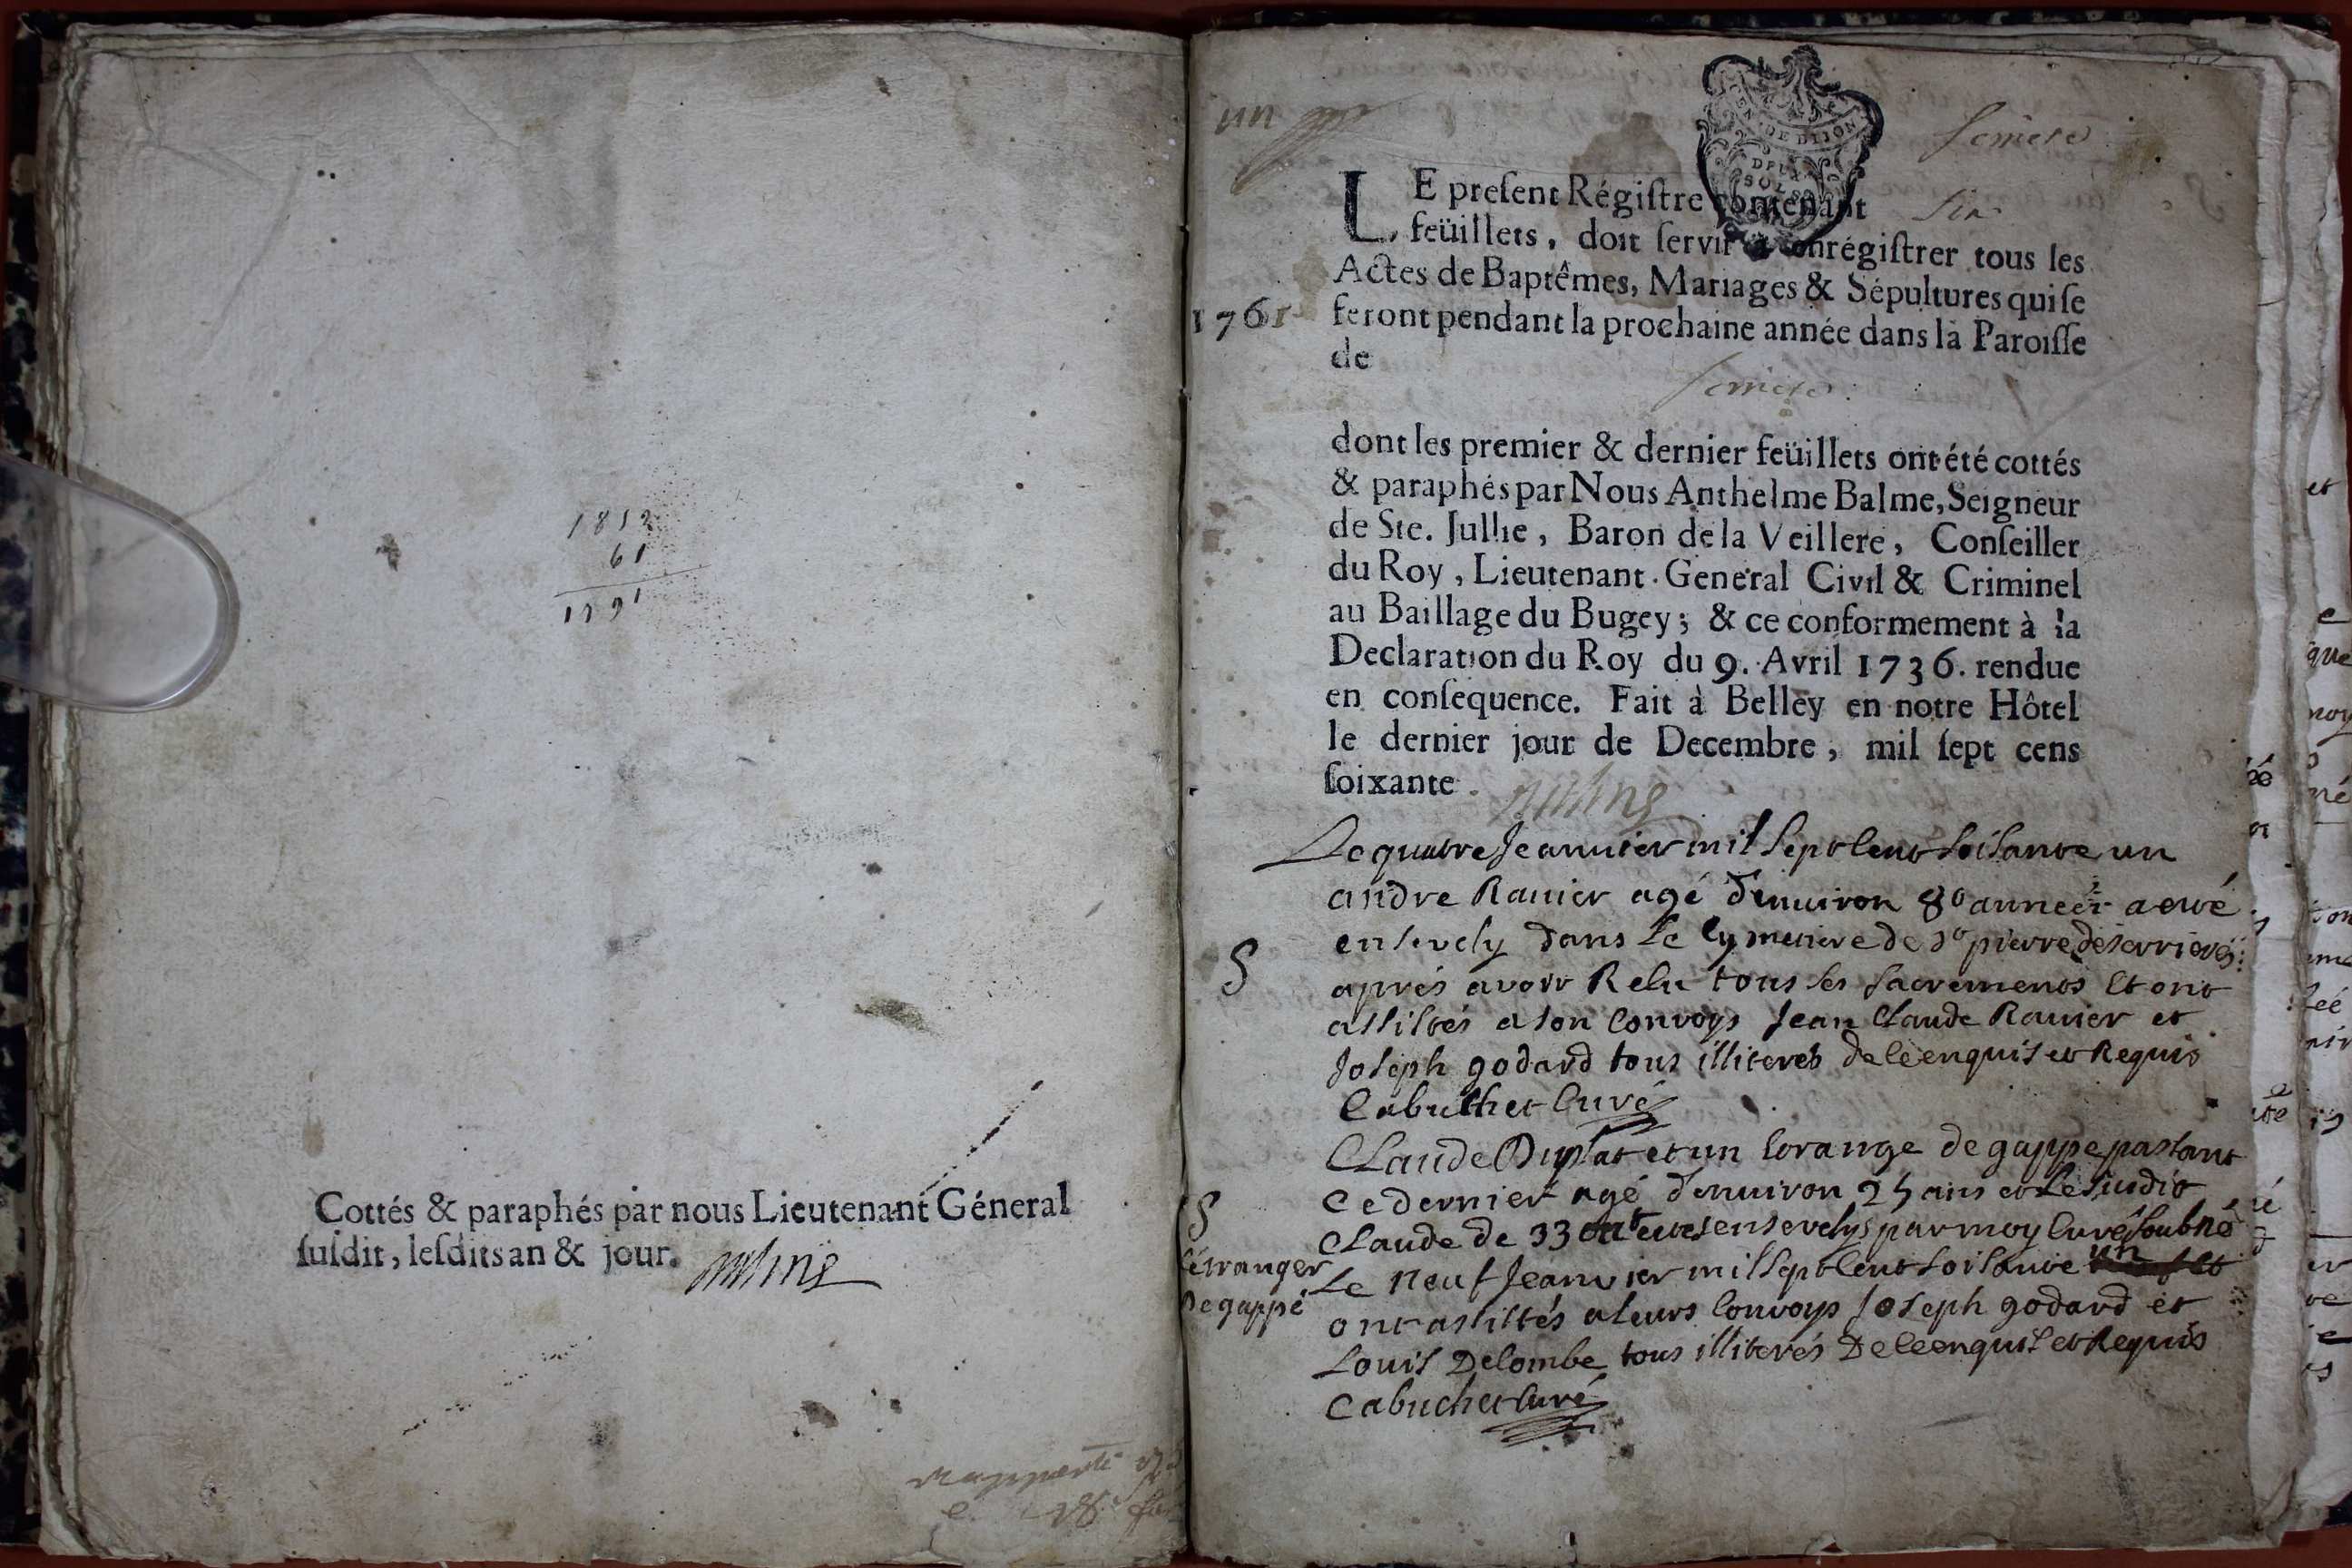 1812
61
1791
Cottés & paraphés par nous Lieutenant Géneral
ſuſdit, leſdits an & jour.
un
GEN. DE DIJON
LE preſent Régiſtre contenant ſix
feüillets, doit ſervir à enrégiſtrer tous les
Actes de Baptêmes, Mariages & Sépultures qui ſe
1761
feront pendant la prochaine année dans la Paroiſſe
de
dont les premier & dernier feüillets ont été cottés
& paraphés par Nous Anthelme Balme, Seigneur
de Ste. Jullie, Baron de la Veillere, Conſeiller
du Roy, Lieutenant General Civil & Criminel
au Baillage du Bugey; & ce conformement à la
Declaration du Roy du 9. Avril 1736. rendue
en conſequence. Fait à Belley en notre Hôtel
le dernier jour de Decembre, mil ſept cens
ſoixante.
Le quatre Jeanvier mil sept cent soisante un
andre Ravier agé d'environ 80 années a eté
S
ensevely dans le cymetiere de st pierre
aprés avoir Recu tous ses sacremens et ont
assistés a son convoys Jean Claude Ravier et
Joseph godard tous illiterés de ce enquis et Requis
Cabuchet Curé
Claude Duplat et un etrange de gappe passant
S
ce dernier agé d'environ 25 ans et le susdit
Claude de 33 ont etes ensevelys par moy curé soubné
l'étranger
De gappé
le neuf Jeanvier mil sept cent soisante un
ont assistés a leurs convoys Joseph godard et
Louis Delombe tous illiterés De ce enquis et Requis
Cabuchet Curé